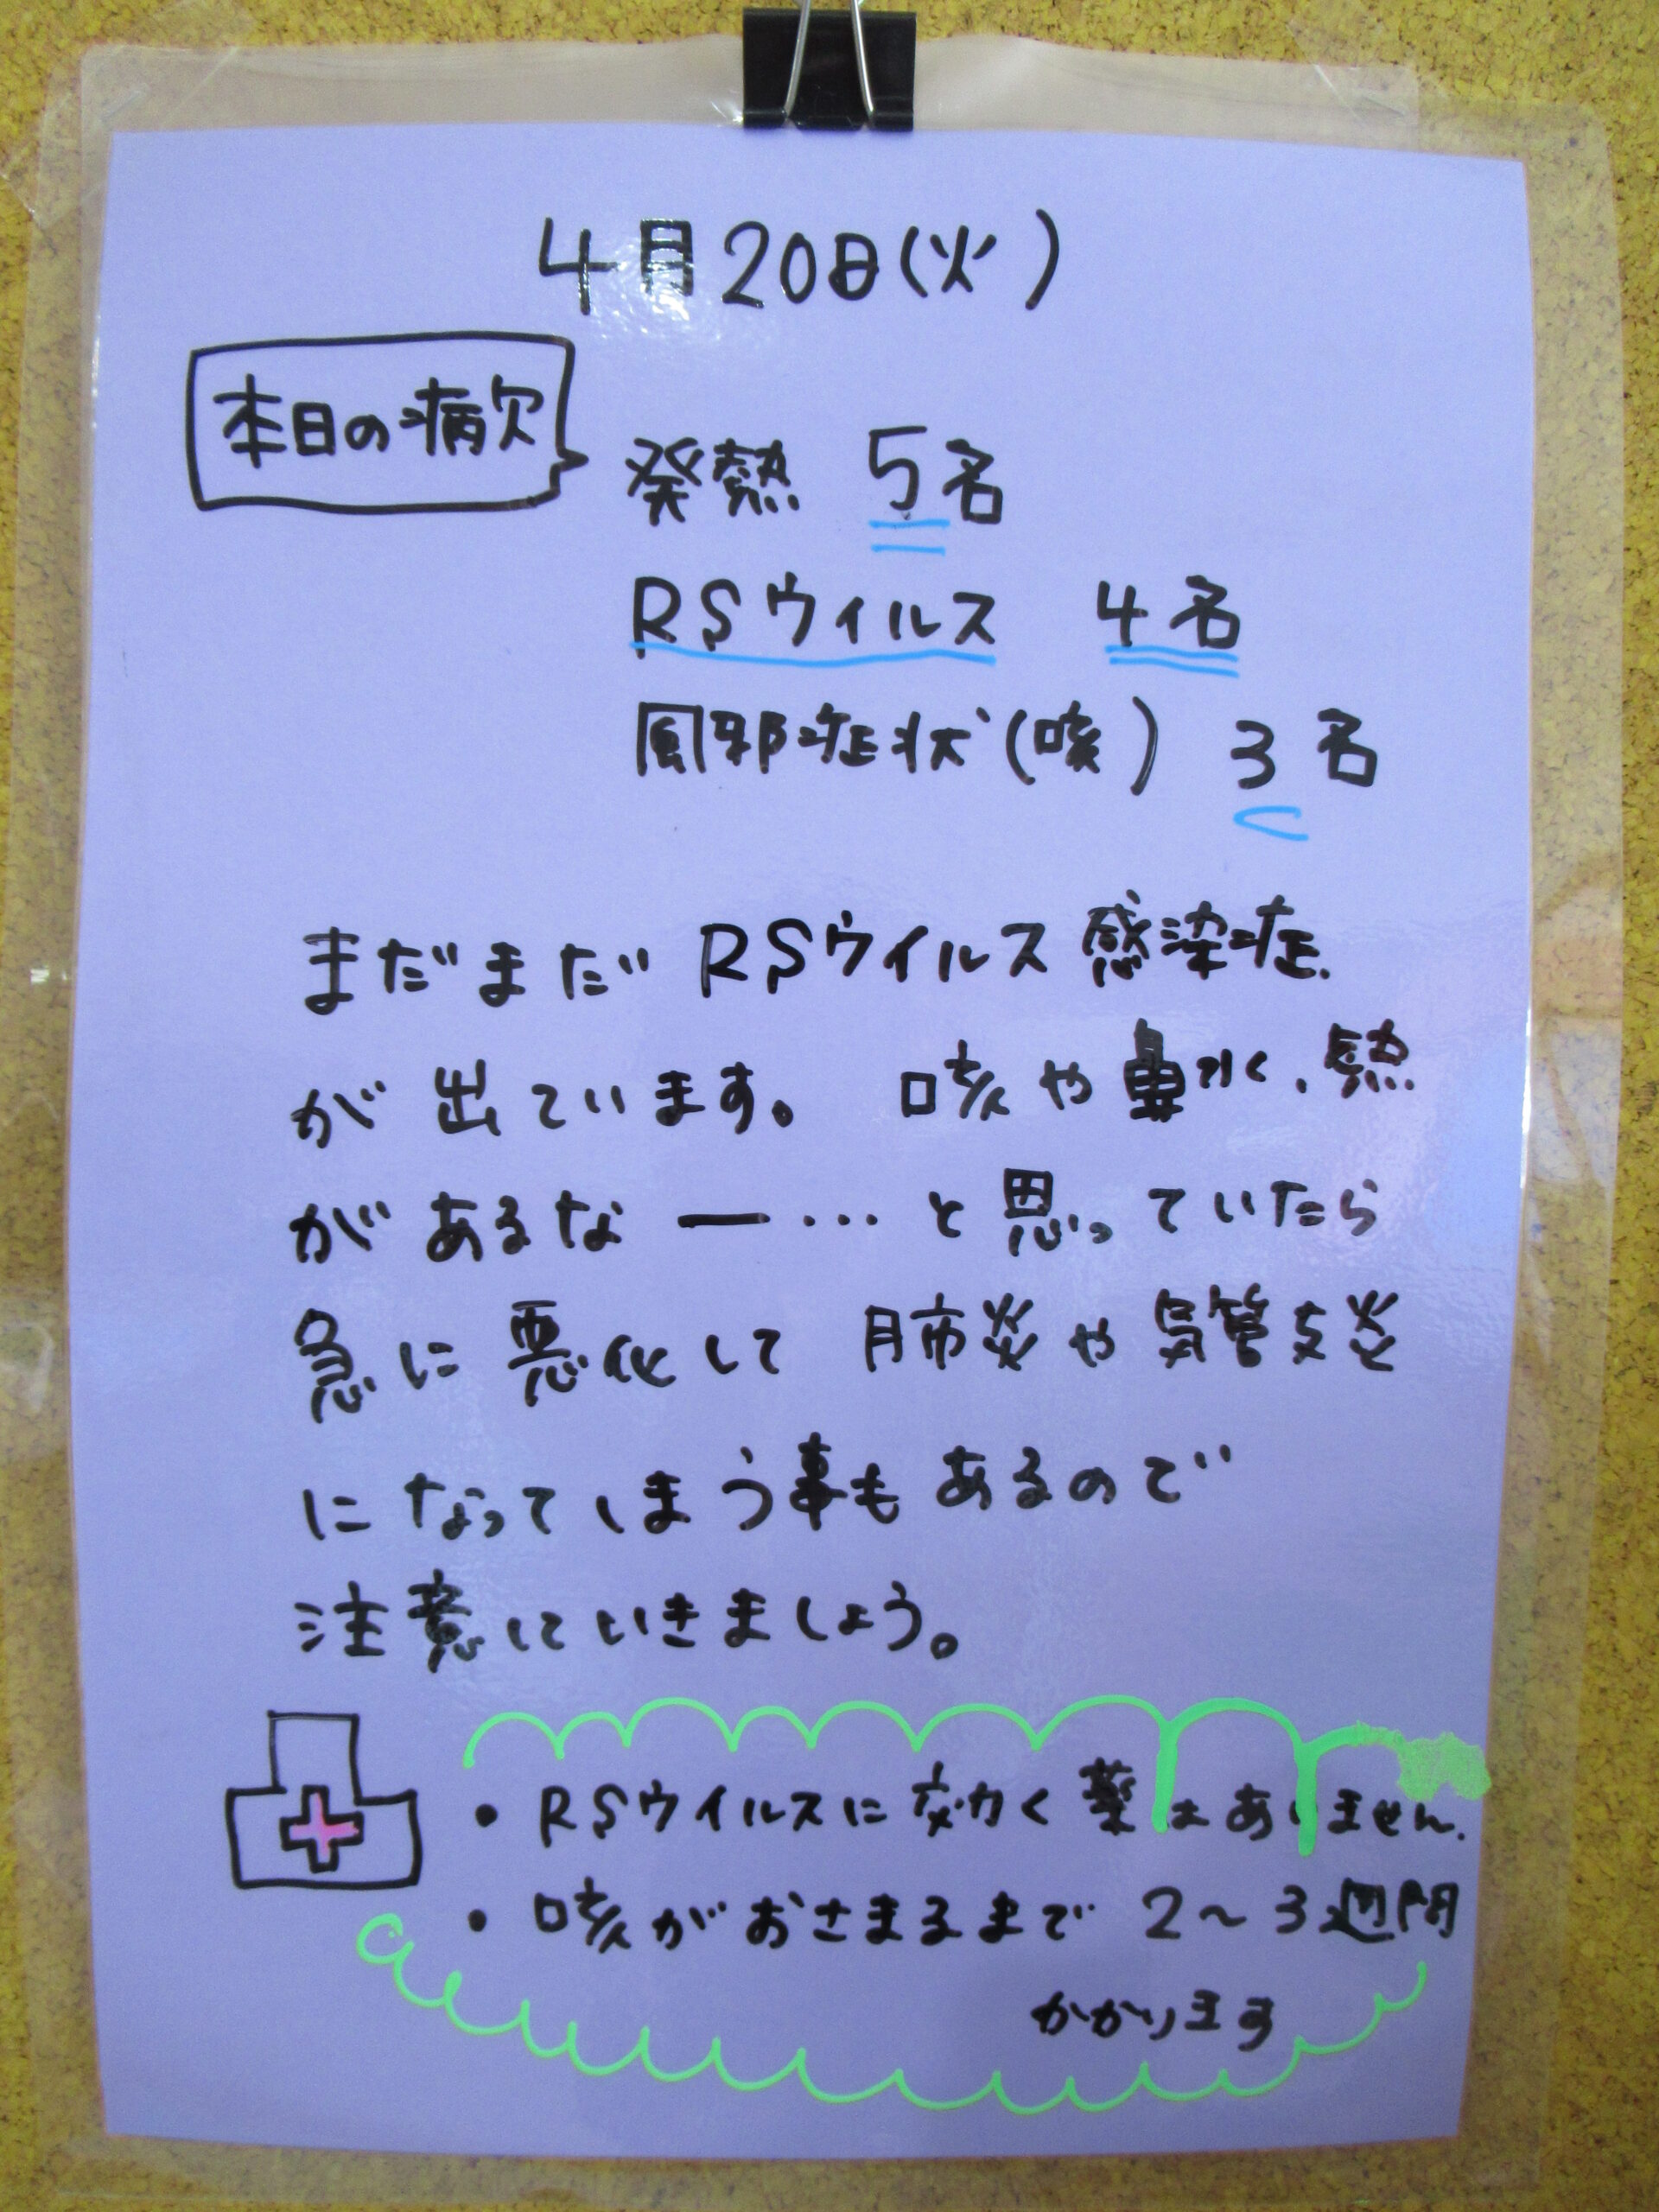 4月20日(火)
本日の病欠
発熱 5名
RSウィルス 4名
風邪症状(咳) 3名
まだまだRSウイルス感染症
が出ています。 咳や鼻水、熱
があるなー…と思っていたら
急に悪化して 肺炎や気管支炎
になってしまう事もあるので
注意していきましょう。
・RSウイルスに効く薬はありません.
・咳がおさまるまで 2〜3週間
かかります